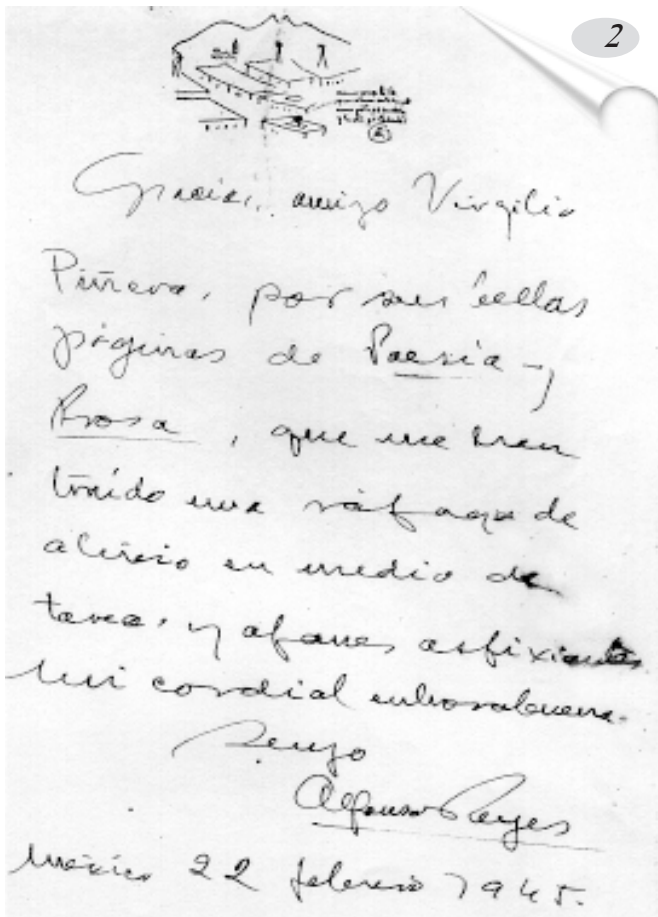 2
Gracias, amigo Virgilio
Piñera, por sus bellas
páginas de Poesía y
Prosa, que me han
traído una ráfaga de
alivio en medio de
tareas y afanes asfixiantes
Mi cordial enhorabuena.
Suyo
Alfonso Reyes
México 22 febrero 1945.